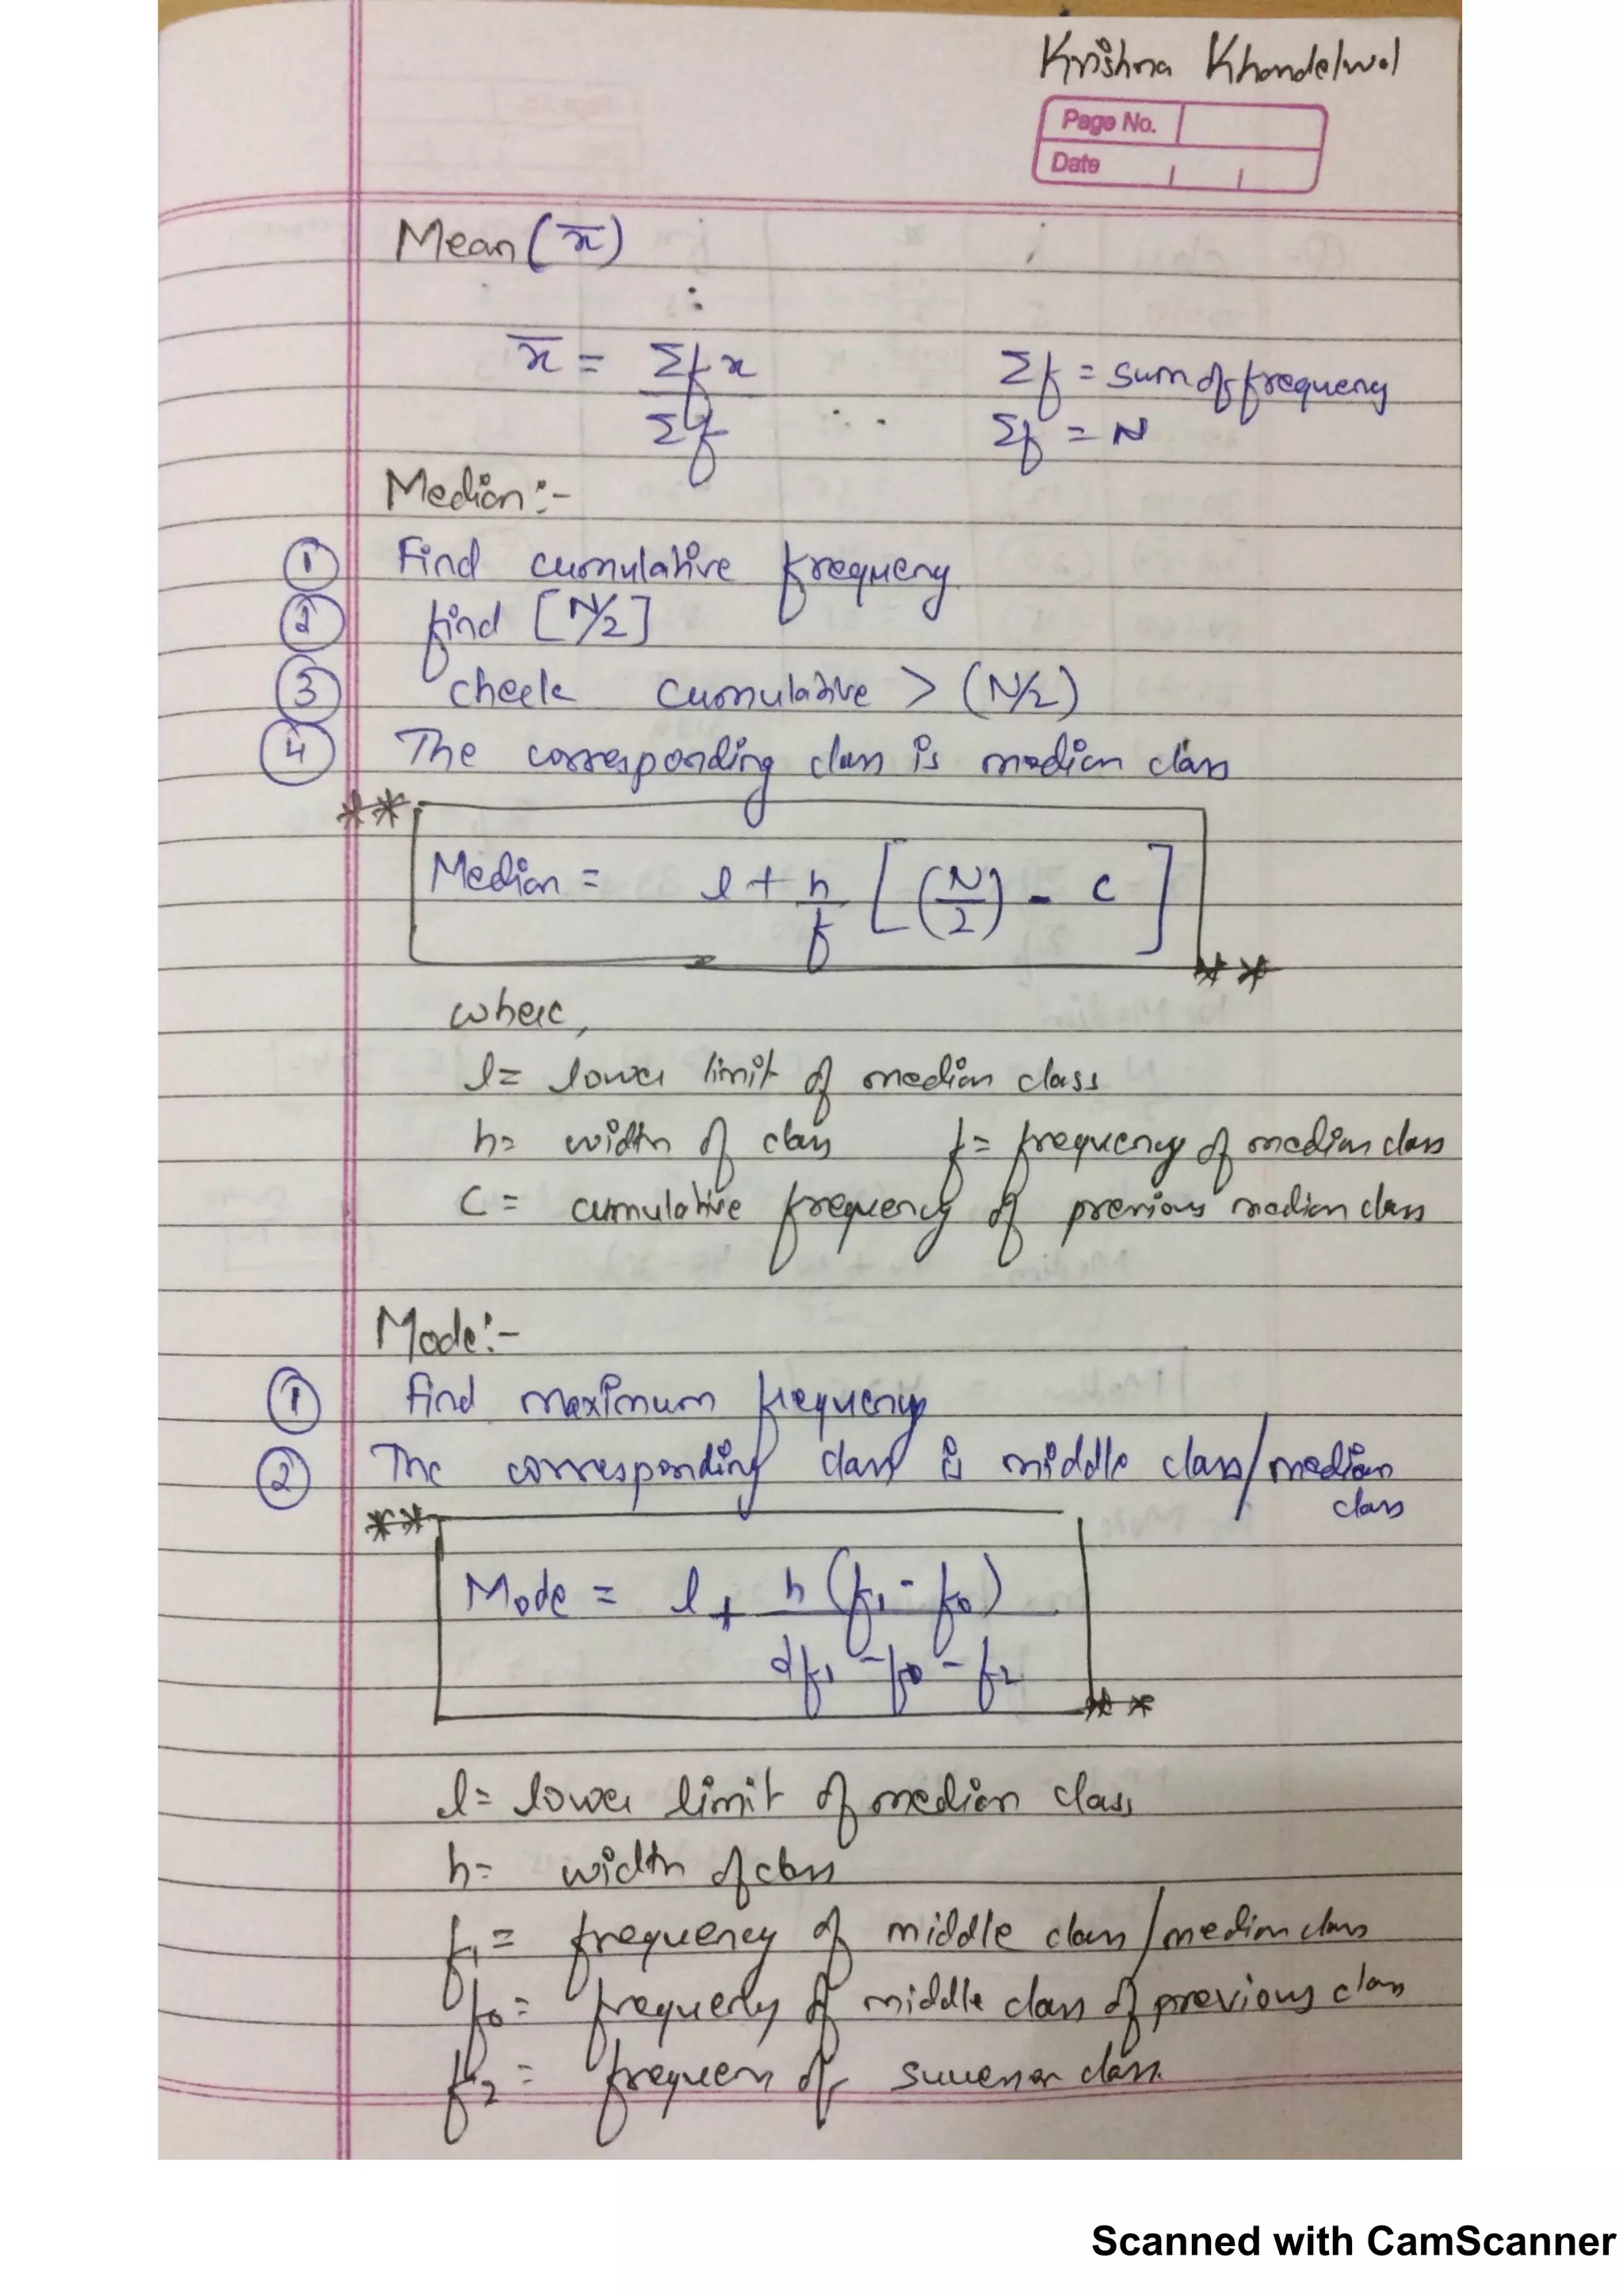 Krishna Khandelwal
Page No.
Date
Mean (x̄)
x̄ = Σfx / Σf
Σf = sum of frequency
Σf = N
Median :-
① Find cumulative frequency
② find [N/2]
③ check cumulative > (N/2)
④ The corresponding class is median class
**
Median = l + h/f [(N/2) - c]
**
where,
l = lower limit of median class
h = width of class f = frequency of median class
C = cumulative frequency of previous median class
Mode :-
① find maximum frequency
② The corresponding class is middle class/median
class
**
Mode = l + h(f₁ - f₀) / 2f₁ - f₀ - f₂
**
l = lower limit of median class
h = width of class
f₁ = frequency of middle class/median class
f₀ = frequency of middle class of previous class
f₂ = frequen of successor class.
Scanned with CamScanner